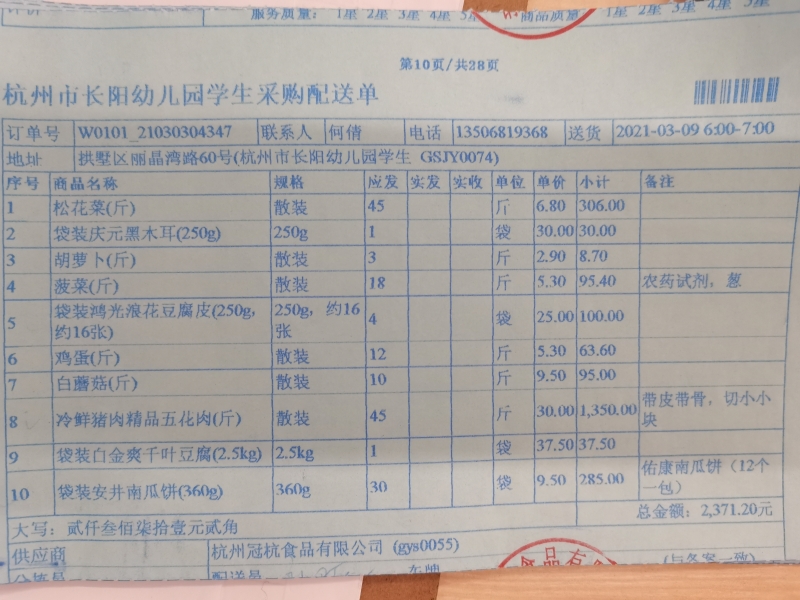 服务质量： 1星 2星 3星 4星 5星 商品质量： 1星 2星 3星 4星 5星
第10页/共28页
杭州市长阳幼儿园学生采购配送单
订单号 W0101_21030304347 联系人 何倩 电话 13506819368 送货 2021-03-09 6:00-7:00
地址 拱墅区丽晶湾路60号(杭州市长阳幼儿园学生 GSJY0074)
序号 商品名称 规格 应发 实发 实收 单位 单价 小计 备注
1 松花菜(斤) 散装 45 斤 6.80 306.00
2 袋装庆元黑木耳(250g) 250g 1 袋 30.00 30.00
3 胡萝卜(斤) 散装 3 斤 2.90 8.70
4 菠菜(斤) 散装 18 斤 5.30 95.40 农药试剂，葱
5 袋装鸿光浪花豆腐皮(250g, 250g，约16 4 袋 25.00 100.00
约16张) 张
6 鸡蛋(斤) 散装 12 斤 5.30 63.60
7 白蘑菇(斤) 散装 10 斤 9.50 95.00
8 冷鲜猪肉精品五花肉(斤) 散装 45 斤 30.00 1,350.00 带皮带骨，切小小
块
9 袋装白金爽千叶豆腐(2.5kg) 2.5kg 1 袋 37.50 37.50
10 袋装安井南瓜饼(360g) 360g 30 袋 9.50 285.00 佑康南瓜饼（12个
一包）
总金额：2,371.20元
大写：贰仟叁佰柒拾壹元贰角
供应商 杭州冠杭食品有限公司 (gys0055)
分拣员 配送员 车牌 (与备案一致)
食品有限